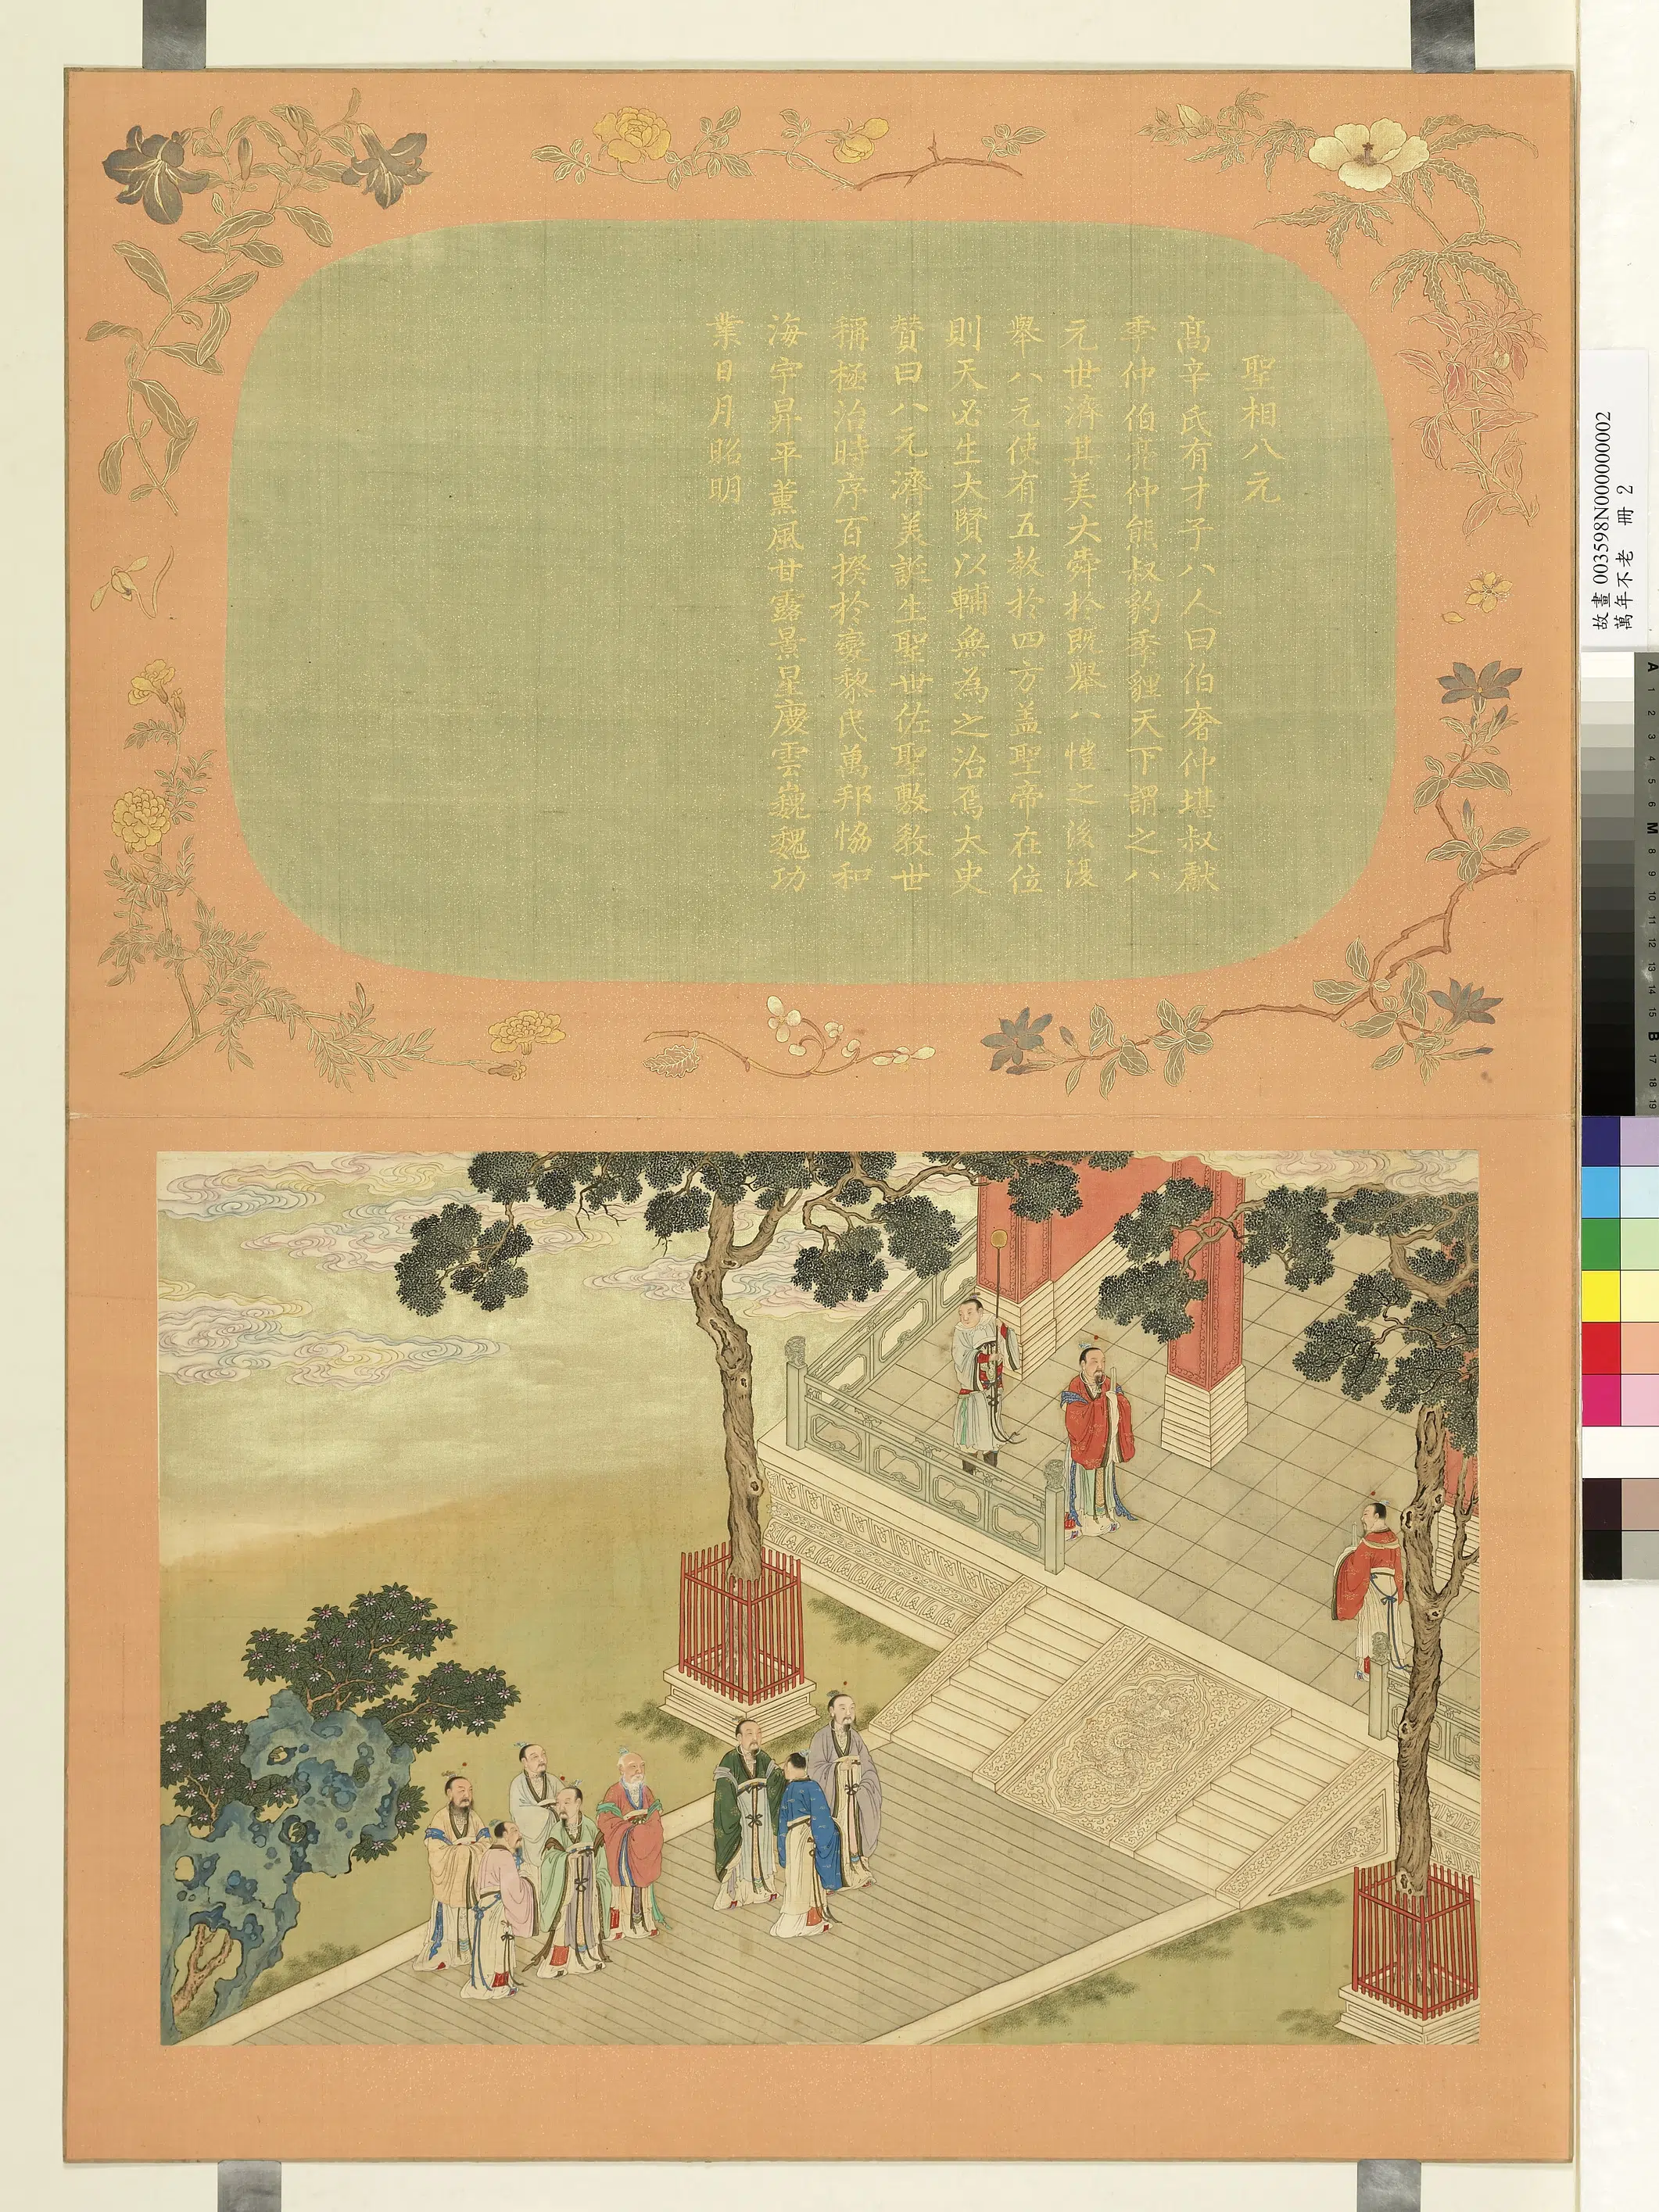 聖相八元
髙辛氏有才子八人曰伯奮仲堪叔獻
季仲伯虎仲熊叔豹季貍天下謂之八
元世濟其美大舜於既舉八愷之後復
舉八元使有五敎於四方蓋聖帝在位
則天必生大賢以輔無為之治焉太史
贊曰八元濟美誕生聖世佐聖敷敎世
稱極治時序百揆於變黎民萬邦恊和
海宇昇平薰風甘露景星慶雲巍巍功
業日月昭明
故畫 003598N000000002
萬年不老 冊 2
A 1 2 3 4 5 6 M 8 9 10 11 12 13 14 15 B 17 18 19